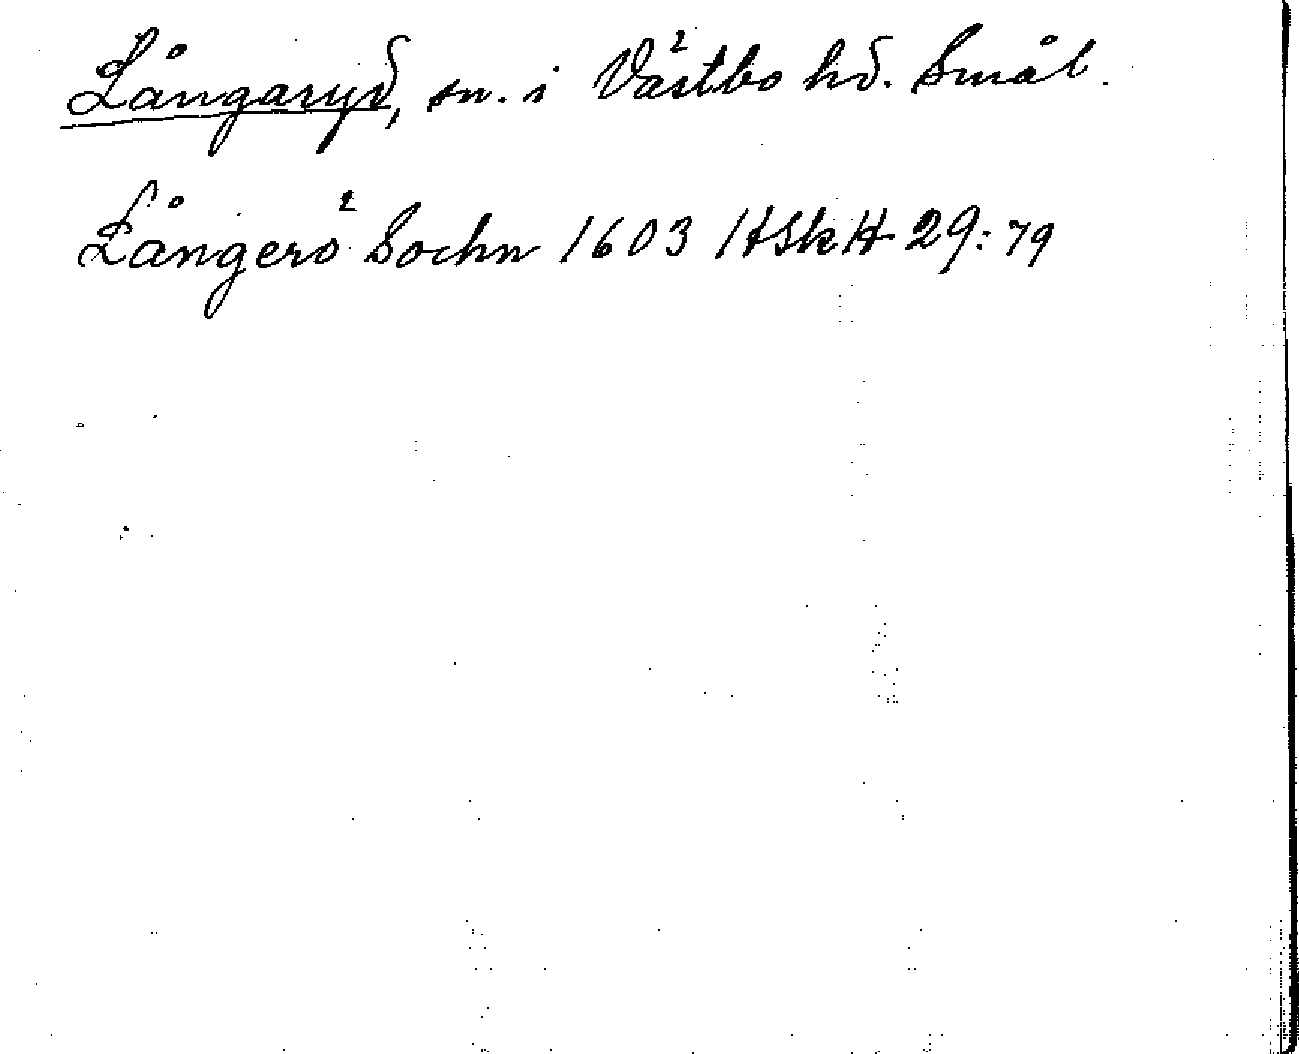 Långaryd, sn. i Västbo hd. Smål.
Långerö Sochn 1603 HSkH 29:79